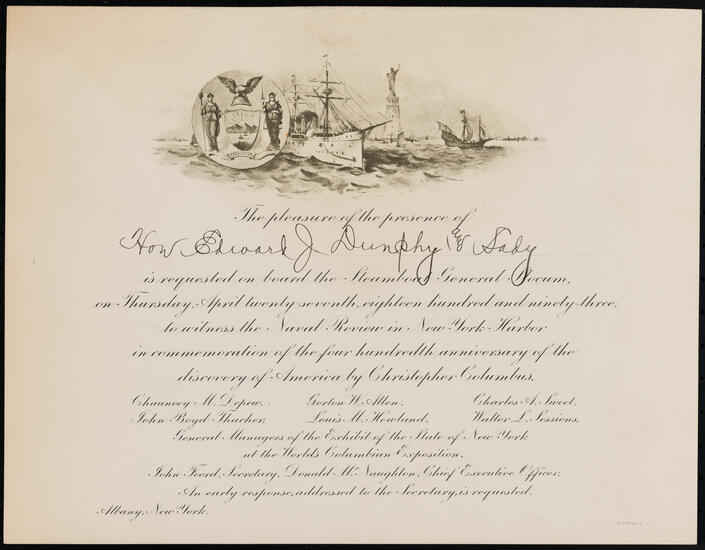 EXCELSIOR
The pleasure of the presence of
Hon Edward J Dunphy & Lady
is requested on board the Steamboat General Slocum,
on Thursday, April twenty-seventh, eighteen hundred and ninety-three,
to witness the Naval Review in New York Harbor
in commemoration of the four hundredth anniversary of the
discovery of America by Christopher Columbus.
Chauncey M. Depew, Gorton W. Allen, Charles A. Sweet,
John Boyd Thacher, Louis M. Howland, Walter L. Sessions,
General Managers of the Exhibit of the State of New York
at the World's Columbian Exposition.
John Foord, Secretary, Donald McNaughton, Chief Executive Officer.
An early response, addressed to the Secretary, is requested.
Albany, New York.